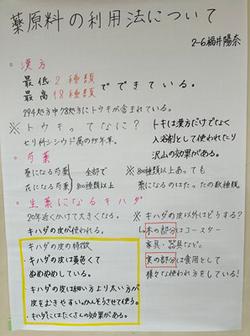 薬原料の利用法について
2-6福井陽奈
○漢方
最低2種類
最高18種類 でできている。
294処方中78処方にトウキが含まれている。
※トウキってなに？
セリ科シシウド属の多年草。
トキは漢方だけでなく
入浴剤として使われたり
沢山の効果がある。
○芍薬
薬になる芍薬
花になる芍薬 全部で80種類以上
※80種類以上あっても
薬になるのはたったの数種類
○生薬になるキハダ
20年近くかけて大きくなる。
キハダの皮が使われる。
キハダの皮の特徴
・キハダの皮は黄色くて
ぬめぬめしている。
・キハダの皮は細い方より太い方が
・キハダにはたくさんの効果がある。
※キハダの皮以外はどうする？
木の部分はコースター
家具・器具など。
実の部分は食用として
様々な使われ方をしている！